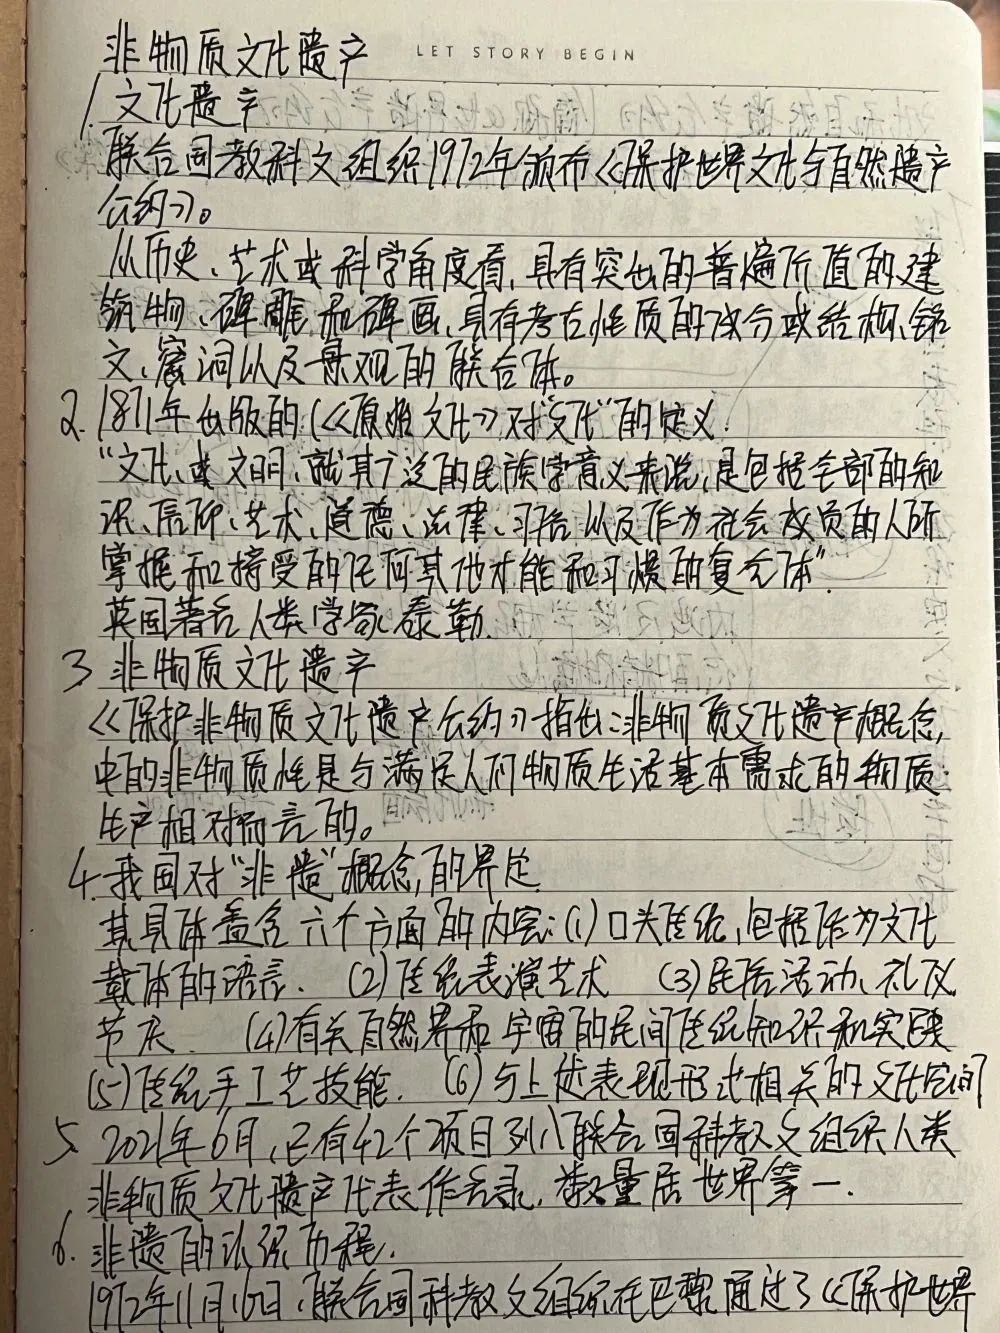 LET STORY BEGIN
非物质文化遗产
1. 文化遗产
联合国教科文组织1972年颁布《保护世界文化与自然遗产
公约》。
从历史、艺术或科学角度看,具有突出的普遍价值的建
筑物、碑雕和碑画、具有考古性质的成分或结构、铭
文、窟洞以及景观的联合体。
2. 1871年出版的(《原始文化》对“文化”的定义.
“文化,或文明,就其广泛的民族学意义来说,是包括全部的知
识、信仰、艺术、道德、法律、习俗以及作为社会成员的人所
掌握和接受的任何其他才能和习惯的复合体”.
英国著名人类学家泰勒.
3 非物质文化遗产
《保护非物质文化遗产公约》指出:非物质文化遗产概念,
中的非物质性是与满足人们物质生活基本需求的物质
生产相对而言的。
4. 我国对“非遗”概念,的界定
其具体盖含六个方面的内容:(1)口头传统,包括作为文化
载体的语言. (2)传统表演艺术 (3)民俗活动、礼仪
节庆. (4)有关自然界和宇宙的民间传统知识和实践
(5)传统手工艺技能. (6)与上述表现形式相关的文化空间
5. 2021年6月,已有42个项目列入联合国科教文组织人类
非物质文化遗产代表作名录,数量居世界第一.
6. 非遗的认识历程.
1972年11月16日,联合国科教文组织在巴黎通过了《保护世界